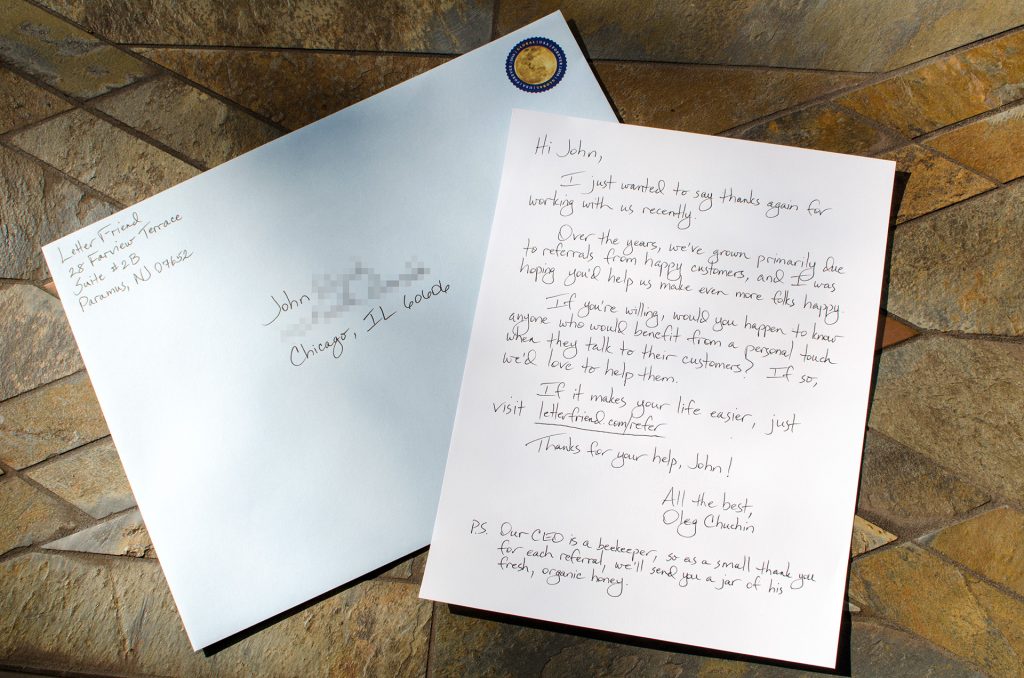 Letter Friend
28 Farview Terrace
Suite #2B
Paramus, NJ 07652
John
Chicago, IL 60606
Hi John,
I just wanted to say thanks again for
working with us recently.
Over the years, we've grown primarily due
to referrals from happy customers, and I was
hoping you'd help us make even more folks happy.
If you're willing, would you happen to know
anyone who would benefit from a personal touch
when they talk to their customers? If so,
we'd love to help them.
If it makes your life easier, just
visit letterfriend.com/refer
Thanks for your help, John!
All the best,
Oleg Chuchin
P.S. Our CEO is a beekeeper, so as a small thank you
for each referral, we'll send you a jar of his
fresh, organic honey.